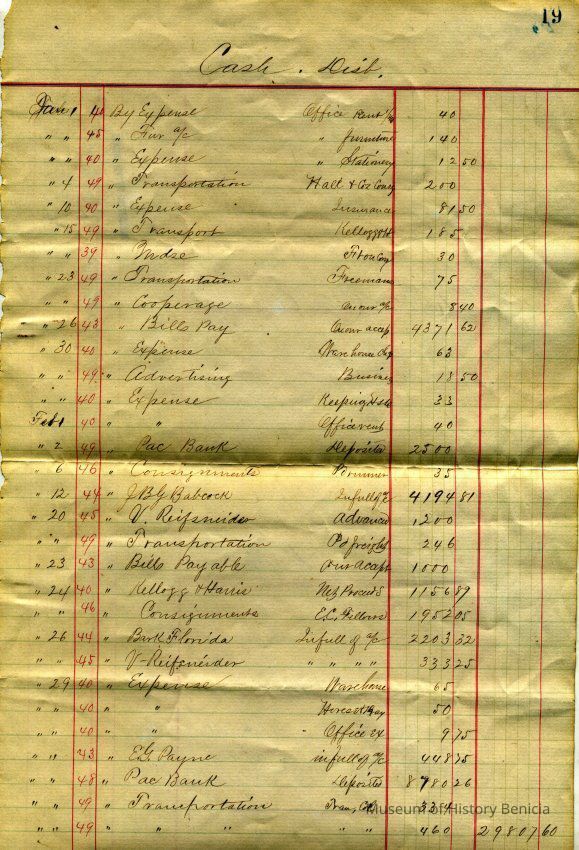 19
Cash. Disb.
Jan 1 40 By Expense Office Rent 40
" " 45 " Fur a/c " furniture 140
" " 40 " Expense " Stationery 12 50
" 4 49 " Transportation Halt & Coz 200
" 10 40 " Expense Insurance 81 50
" 15 49 " Transport Kellogg 185
" " 39 " Mdse 30
" 23 49 " Transportation Freeman 75
" " 49 " Cooperage On our a/c 8 40
" 26 43 " Bills Pay On our accep 4371 62
" 30 40 " Expense Warehouse 63
" " 49 " Advertising Busines 18 50
" " 40 " Expense Keeping 33
Feb 1 40 " " Office rent 40
" 2 49 " Pac Bank Deposits 2500
" 6 46 " Consignments 35
" 12 44 " J B G Babcock In full a/c 4194 81
" 20 45 " V. Reifsneider Advance 1200
" " 49 " Transportation Pd freight 246
" 23 43 " Bills Payable Our accept 1000
" 24 40 " Kellogg & Harris Net Proceeds 1156 89
" " 46 Consignments E.L. Fellows 1952 05
" 26 44 " Bark Florida In full of a/c 2203 32
" " 45 " V-Reifsneider " " " " 333 25
" 29 40 " Expense Warehouse 65
" " 40 " " 50
" " 40 " " Office Ex 9 75
" " 43 " E.G. Payne in full of a/c 448 75
" " 48 " Pac Bank Deposits 8780 26
" " 49 " Transportation Tran,
" " 49 " " " 460 29807 60
Museum of History Benicia